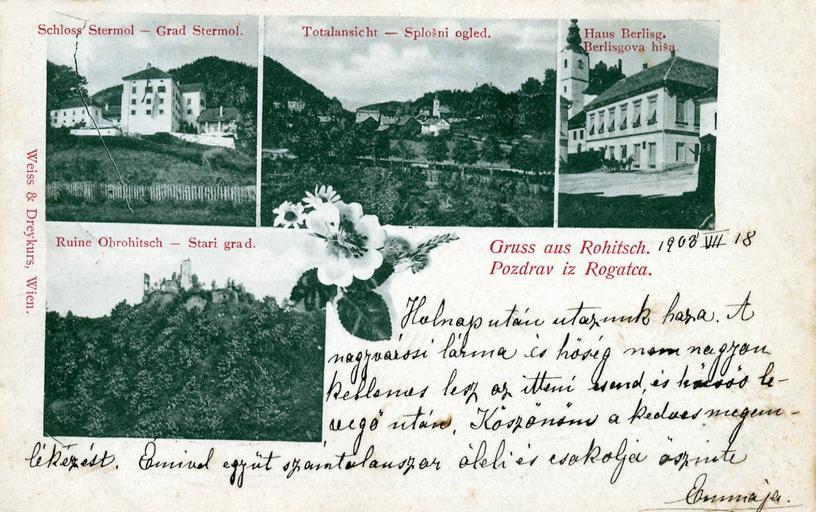 Schloss Stermol – Grad Stermol.
Totalansicht — Splošni ogled.
Haus Berlisg.
Berlisgova hiša
Weiss & Dreykurs, Wien.
Ruine Obrohitsch – Stari grad.
Gruss aus Rohitsch. 1903 VII 18
Pozdrav iz Rogatca.
Holnapután utazunk haza. A
nagyvárosi lárma és hőség nem nagyon
kellemes lesz az itteni csend és hűsős le-
vegő után. Köszönöm a kedves megem-
lékezést. Emivel együt számtalanszor öleli és csokolja őszinte
Emmája.